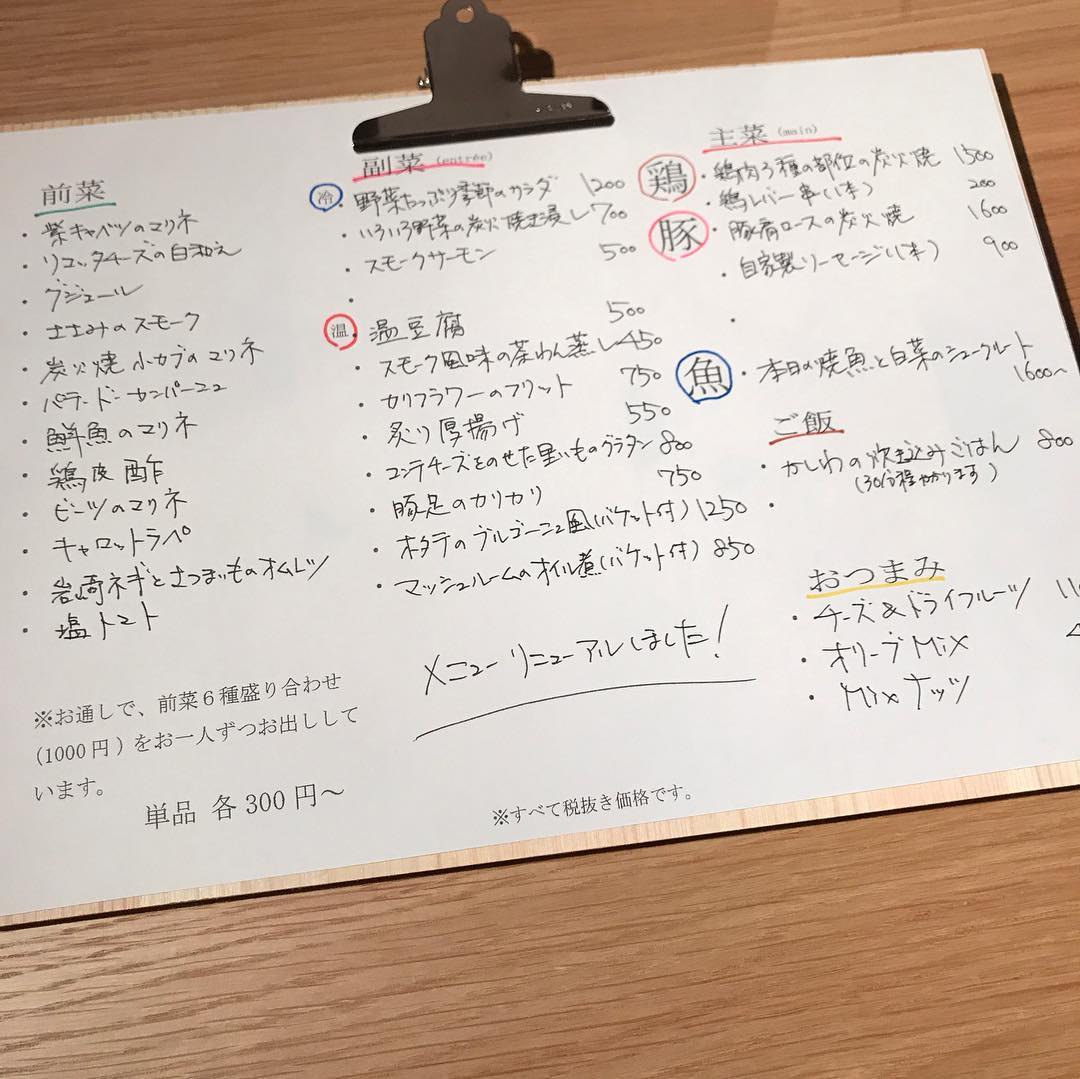 前菜
・紫キャベツのマリネ
・リコッタチーズの白和え
・グジェール
・ささみのスモーク
・炭火焼小カブのマリネ
・パテ・ド・カンパーニュ
・鮮魚のマリネ
・鶏皮酢
・ビーツのマリネ
・キャロットラペ
・岩崎ネギとさつまいものオムレツ
・塩トマト
※お通しで、前菜6種盛り合わせ
(1000円)をお一人ずつお出しして
います。
単品 各300円〜
副菜 (entrée)
冷・野菜たっぷり季節のサラダ 1200
・いろいろ野菜の炭火焼き浸し 700
・スモークサーモン 500
・
温・温豆腐 500
・スモーク風味の茶わん蒸し 450
・カリフラワーのフリット 750
・炙り厚揚げ 550
・コンテチーズをのせた里いものグラタン 800
・豚足のカリカリ 750
・ホタテのブルゴーニュ風(バケット付) 1250
・マッシュルームのオイル煮(バケット付) 850
メニューリニューアルしました!
※すべて税抜き価格です。
主菜 (main)
鶏・鶏肉3種の部位の炭火焼 1500
・鶏レバー串(1本) 200
豚・豚肩ロースの炭火焼 1600
・自家製ソーセージ(1本) 900
・
魚・本日の焼魚と白菜のシュークルート
1600〜
ご飯
・かしわの炊き込みごはん 800
(30分程かかります)
・
おつまみ
・チーズ&ドライフルーツ
・オリーブMix
・Mixナッツ